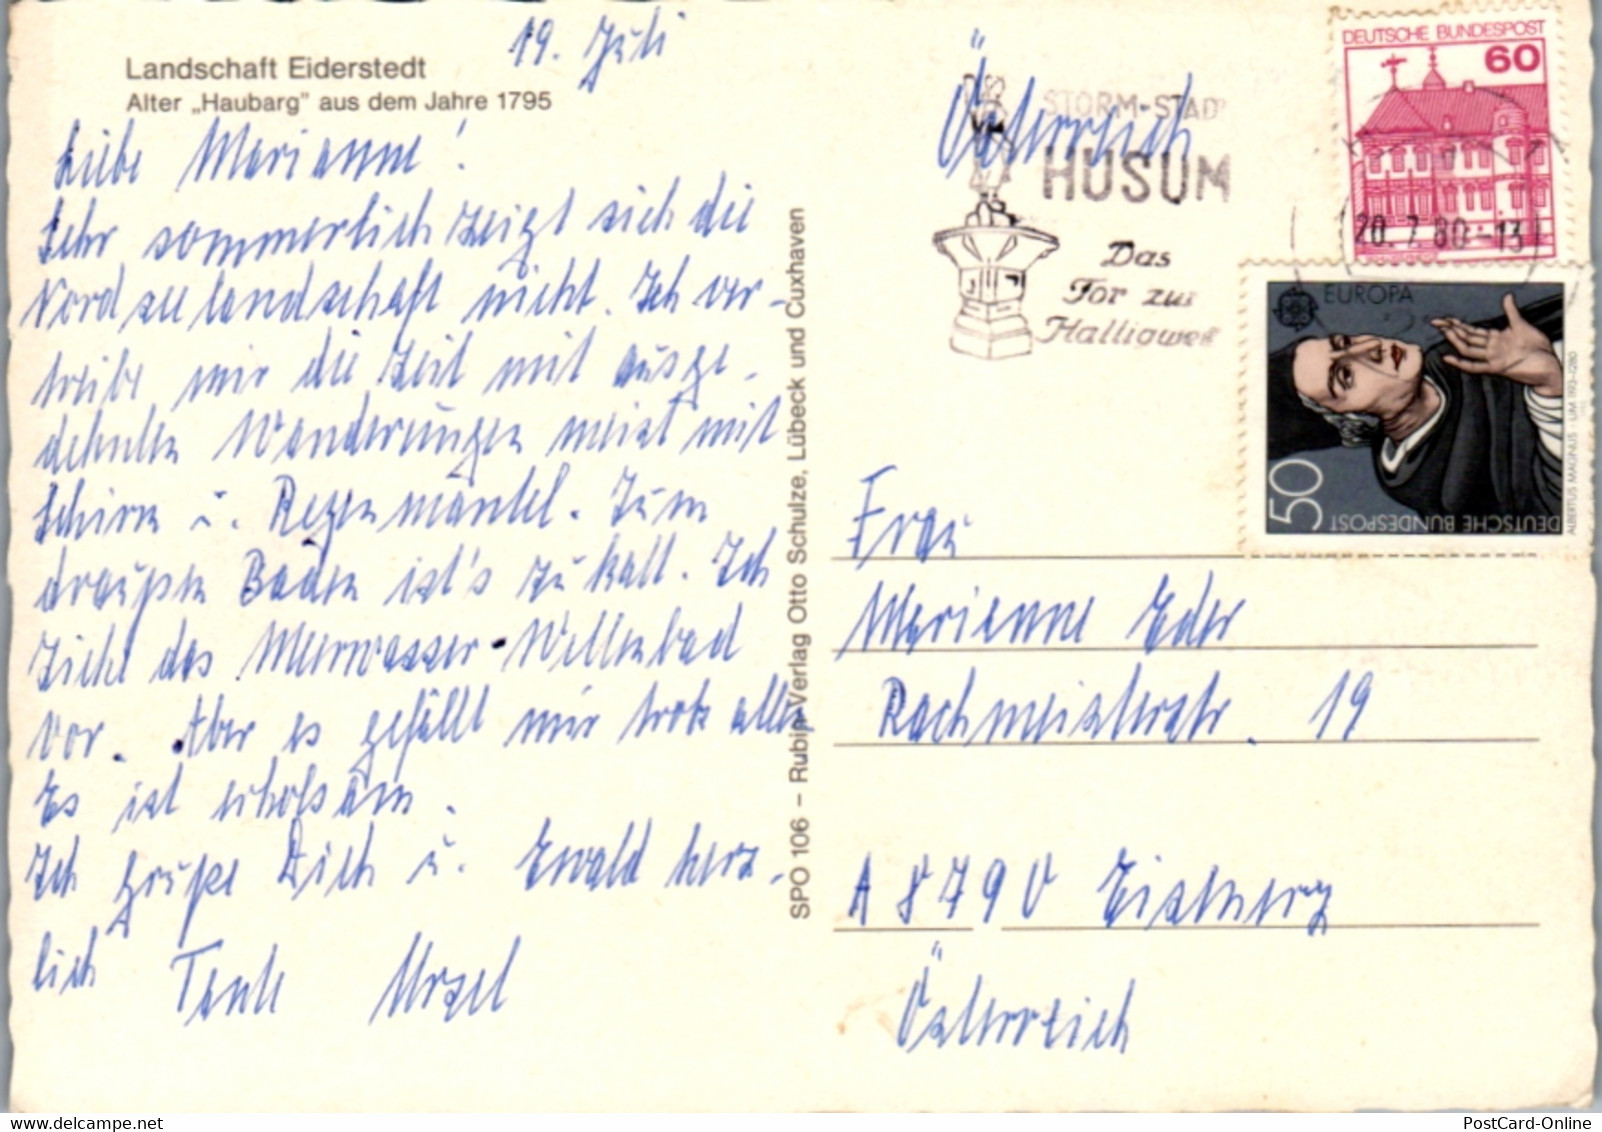 19. Juli
Landschaft Eiderstedt
Alter „Haubarg" aus dem Jahre 1795
Liebe Marianne!
Sehr sommerlich zeigt sich die
Nordseelandschaft nicht. Ich ver-
treibe mir die Zeit mit ausge-
dehnten Wanderungen meist mit
Schirm u. Regenmantel. Zum
draußen Baden ist's zu kalt. Ich
ziehe das Meerwasser-Wellenbad
vor. Aber es gefällt mir trotz allem
Es ist erholsam.
Ich grüße Dich u. Ewald herz-
lich Tante Ursel
SPO 106 – Rubin-Verlag Otto Schulze, Lübeck und Cuxhaven
Österreich
STORM-STADT
HUSUM
Das
Tor zur
Halligwelt
DEUTSCHE BUNDESPOST
60
20.7.80-13
EUROPA
50
DEUTSCHE BUNDESPOST
ALBERTUS MAGNUS · UM 1193–1280
Frau
Marianne Eder
Rachmeisterstr. 19
A 8790 Eisenerz
Österreich
PostCard-Online